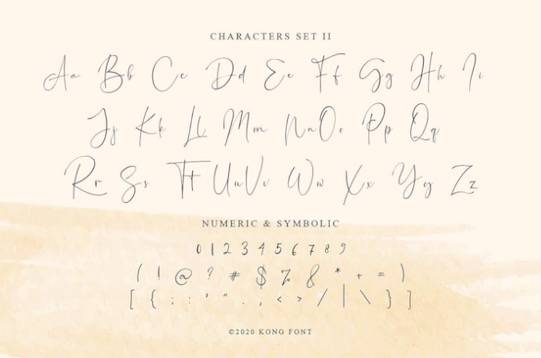 CHARACTERS SET II
Aa Bb Cc Dd Ee Ff Gg Hh Ii
Jj Kk Ll Mm Nn Oo Pp Qq
Rr Ss Tt Uu Vv Ww Xx Yy Zz
NUMERIC & SYMBOLIC
0 1 2 3 4 5 6 7 8 9
( ! @ ? # $ % & * + = )
[ { ; : ' " . , < > / | \ } ]
©2020 KONG FONT